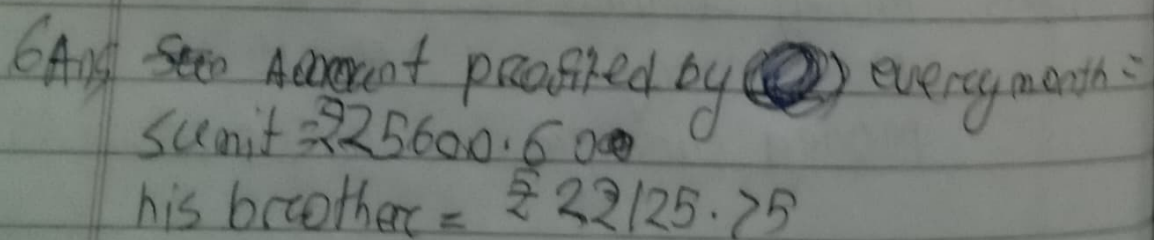 6Ans Seen Amount profited by every month =
Sumit = ₹25600.60
his brother = ₹22125.75